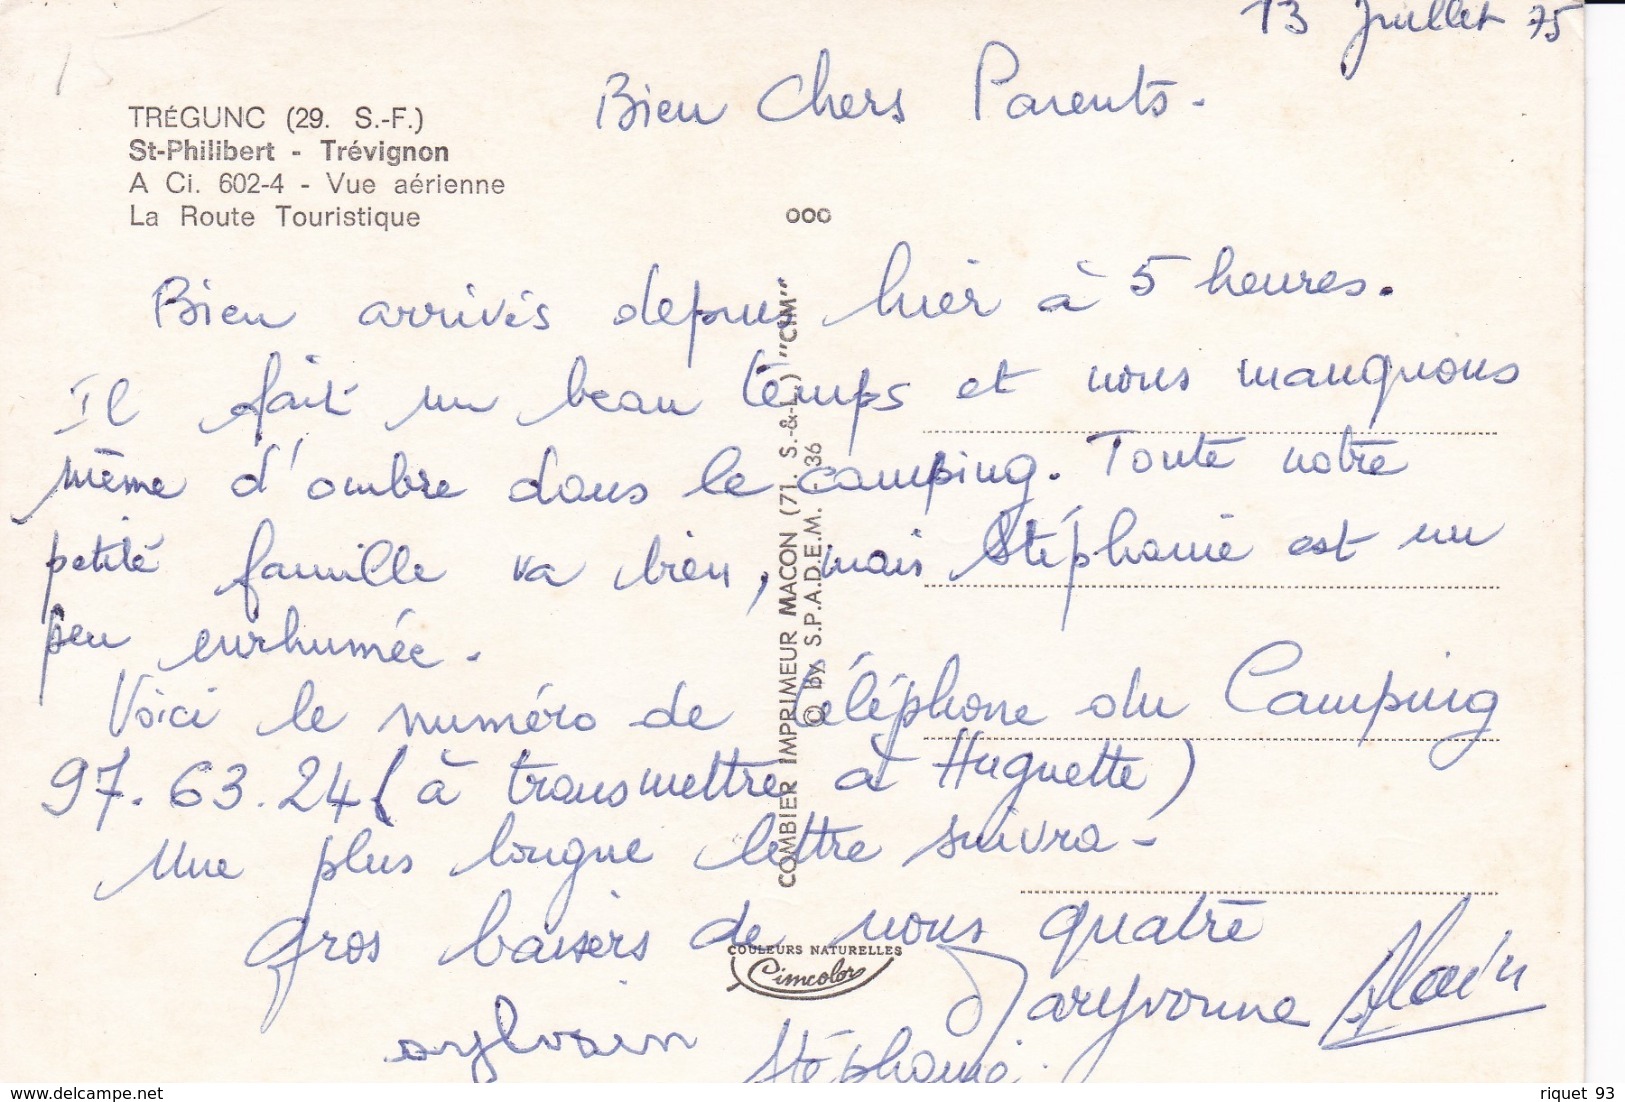 13 Juillet 75
Bien Chers Parents -
TRÉGUNC (29. S.-F.)
St-Philibert - Trévignon
A Ci. 602-4 - Vue aérienne
La Route Touristique
Bien arrivés depuis hier à 5 heures.
Il fait un beau temps et nous manquons
même d'ombre dans le camping. Toute notre
petite famille va bien, mais Stéphanie est un
peu enrhumée.
Voici le numéro de téléphone du Camping
97.63.24 (à transmettre à Huguette)
Une plus longue lettre suivra -
Gros baisers de nous quatre
Maryvonne Alain
sylvain
Stéphanie.
COMBIER IMPRIMEUR MACON (71. S.-&-L.) "CIM"
© by S.P.A.D.E.M. - 36
COULEURS NATURELLES
Cimcolor
delcampe.net
riquet 93